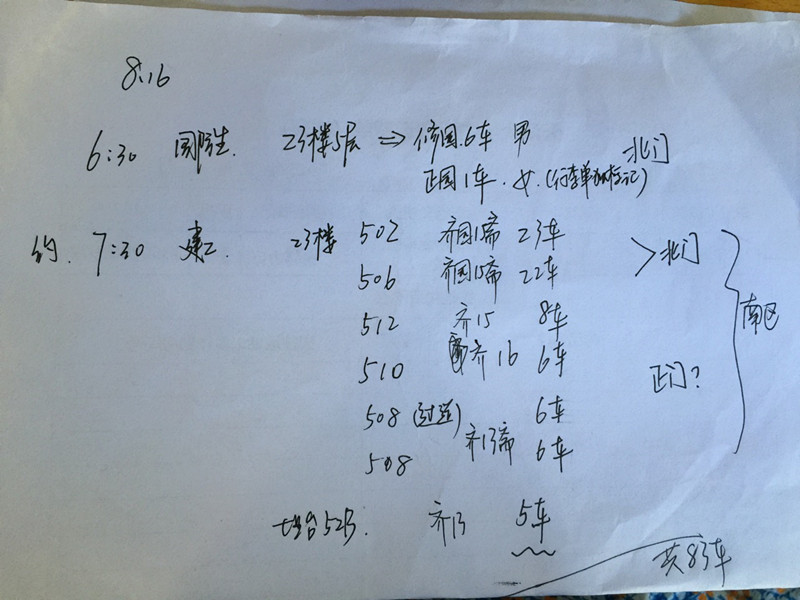 8.16
6:30 国际生. 23楼5层 ⇒ 修园.6车 男 北门
正园1车. 女. (行李单加标记)
约. 7:30 建工 23楼 502 齐园1斋 23车 >北门
506 齐园15斋 22车
512 齐15 8车 南区
510 齐16 6车 正门?
508 (过道) 6车
508 齐13斋 6车
齐13 5车
共83车